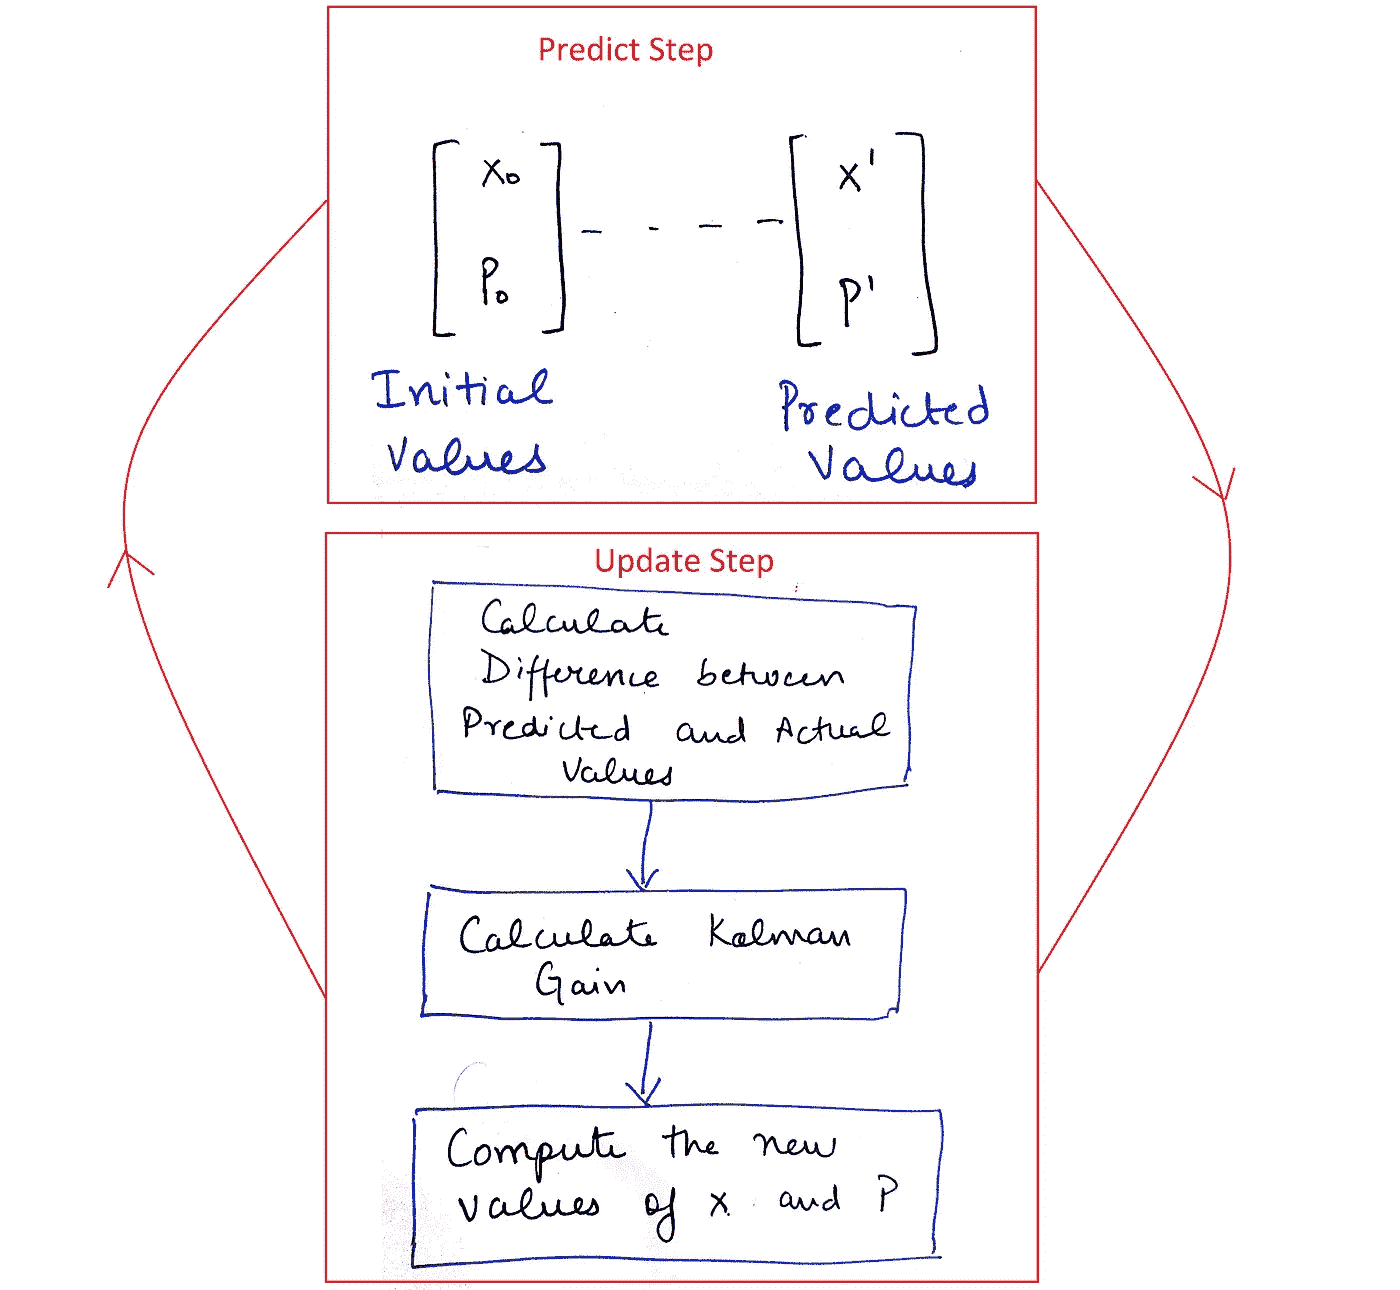 Predict Step
x₀ x'
P₀ P'
Initial Predicted
Values Values
Update Step
Calculate
Difference between
Predicted and Actual
Values
Calculate Kalman
Gain
Compute the new
values of x and P